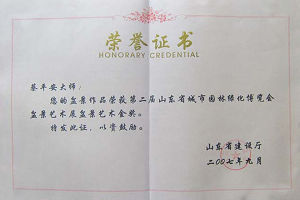 荣誉证书
HONORARY CREDENTIAL
蔡平安大师：
您的盆景作品荣获第二届山东省城市园林绿化博览会
盆景艺术展盆景艺术金奖。
特发此证，以资鼓励。
山东省建设厅
二〇〇七年九月